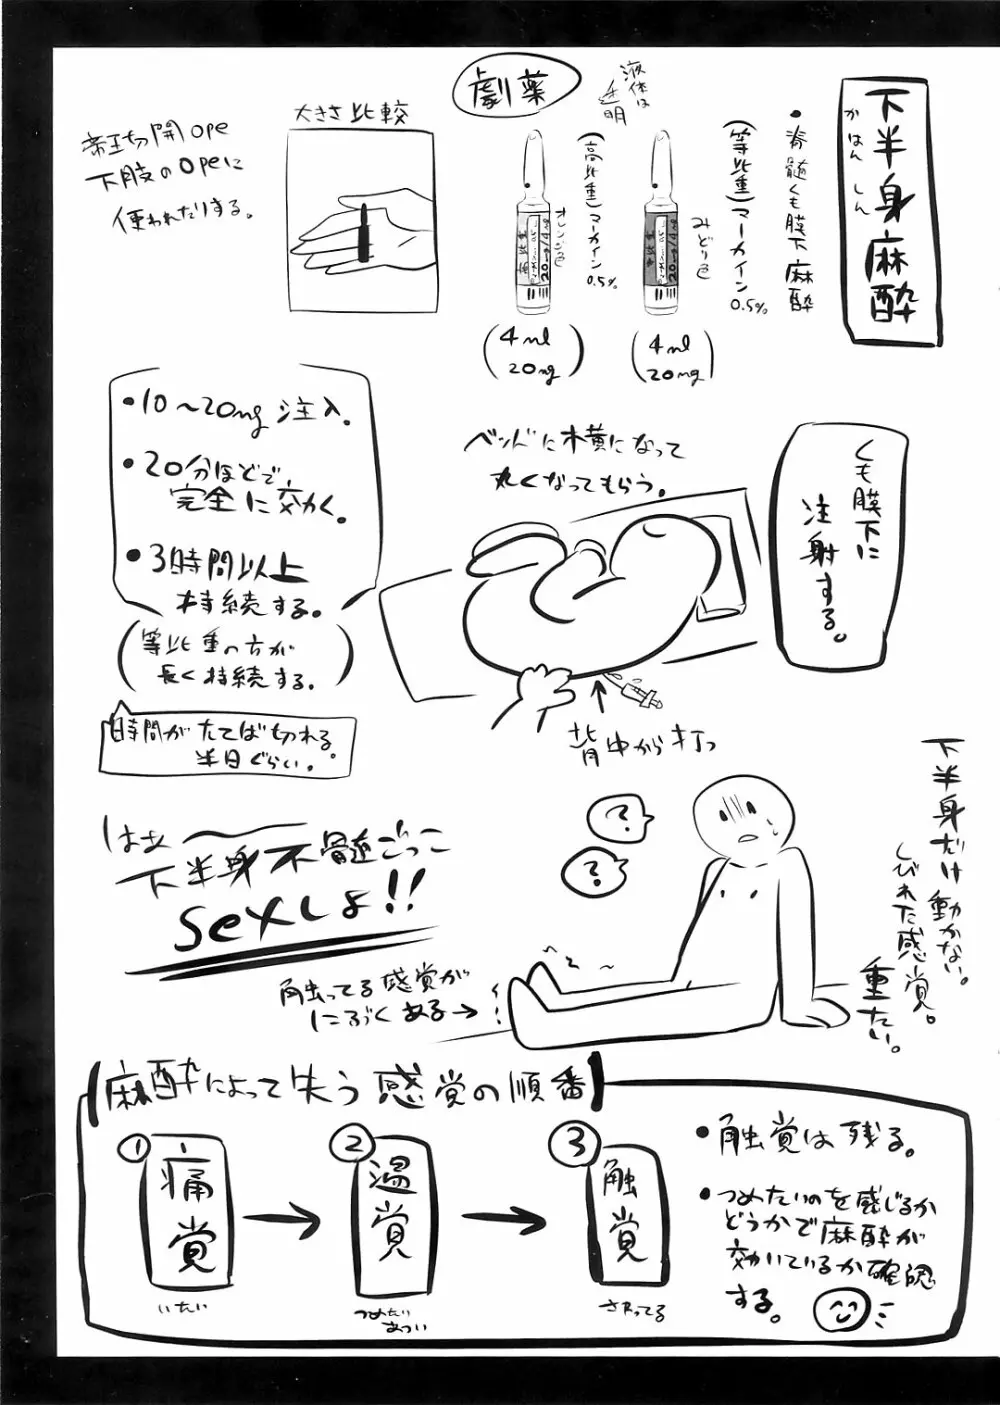 下半身麻酔
かはんしん
•脊髄くも膜下麻酔
(等比重)マーカイン
0.5%
みどり色
4ml
20mg
液体は
透明
劇薬
(高比重)マーカイン
0.5%
オレンジ色
4ml
20mg
大きさ比較
帝王切開ope
下肢のopeに
使われたりする。
くも膜下に
注射する。
ベッドに横になって
丸くなってもらう。
背中から打つ
•10〜20mg注入。
•20分ほどで
完全に効く。
•3時間以上
持続する。
(等比重の方が
長く持続する。)
時間がたてば切れる。
半日ぐらい。
下半身だけ動かない。
しびれた感覚。
重たい。
?
?
はぁ
下半身不髄ごっこ
sexしよ!!
触ってる感覚が
にぶくある→
麻酔によって失う感覚の順番
①痛覚
いたい
②温覚
つめたい
あつい
③触覚
さわってる
•触覚は残る。
•つめたいのを感じるか
どうかで麻酔が
効いているか確認
する。